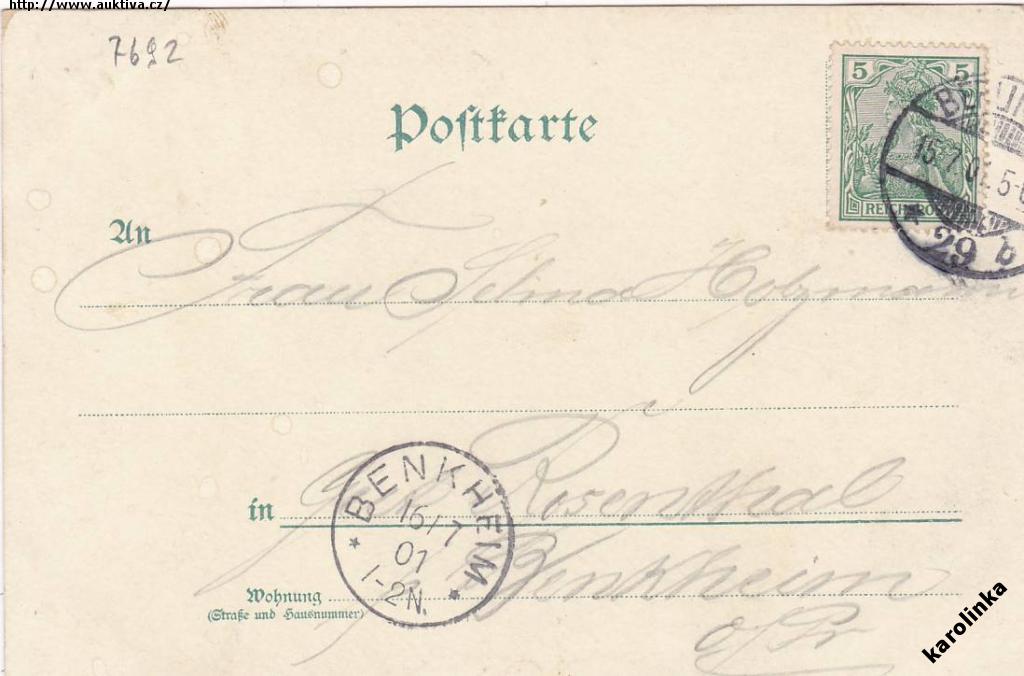 http://www.auktiva.cz/
7692
Postkarte
5 5
REICHSPOST
15.7.01. 5-6
29 b
An
Frau Selma Holzmann
in
Rosenthal
BENKHEIM
16/7
01
1-2N.
Benkheim
Wohnung
(Straße und Hausnummer)
o/Pr
karolinka